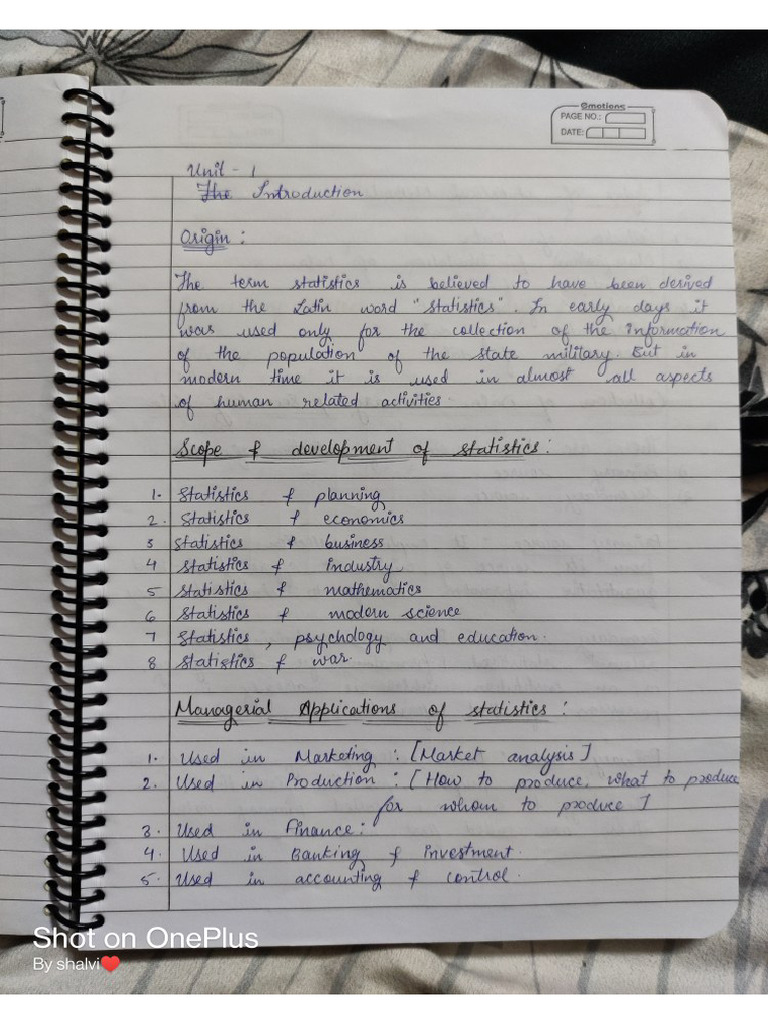 Smotions
PAGE NO.:
DATE:
Unit - 1
The Introduction
Origin :
The term statistics is believed to have been derived
from the Latin word "Statistics". In early days it
was used only for the collection of the information
of the population of the state military. But in
modern time it is used in almost all aspects
of human related activities.
Scope & development of statistics :
1. Statistics & planning
2. Statistics & economics
3 Statistics & business
4 Statistics & industry
5 Statistics & mathematics
6 Statistics & modern science
7 Statistics, psychology and education.
8 Statistics & war.
Managerial Applications of statistics :
1. Used in Marketing : [Market analysis]
2. Used in Production : [How to produce, what to produce
for whom to produce]
3. Used in Finance :
4. Used in Banking & investment.
5. Used in accounting & control.
Shot on OnePlus
By shalvi❤️